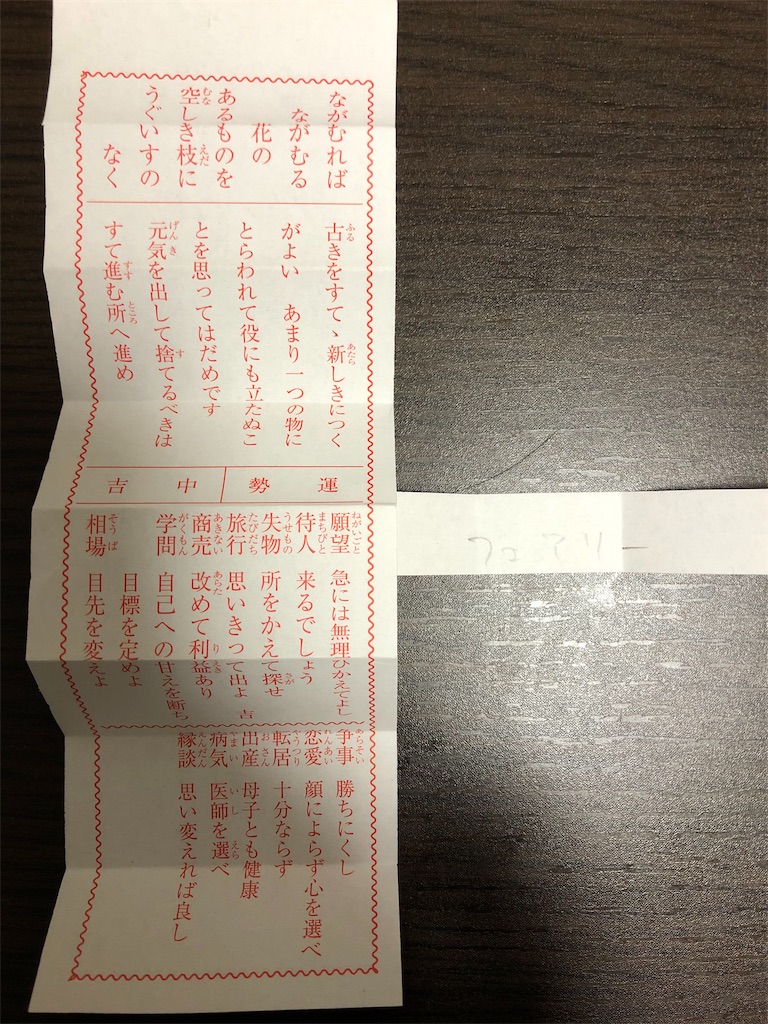 ながむれば
ながむる
花の
あるものを
空しき枝に
うぐいすの
なく
古きをすてゝ新しきにつく
がよい あまり一つの物に
とらわれて役にも立たぬこ
とを思ってはだめです
元気を出して捨てるべきは
すて進む所へ進め
運勢 中吉
願望 急には無理ひかえてよし
待人 来るでしょう
失物 所をかえて探せ
旅行 思いきって出よ 吉
商売 改めて利益あり
学問 自己への甘えを断ち
目標を定めよ
相場 目先を変えよ
争事 勝ちにくし
恋愛 顔によらず心を選べ
転居 十分ならず
出産 母子とも健康
病気 医師を選べ
縁談 思い変えれば良し
フェアリー